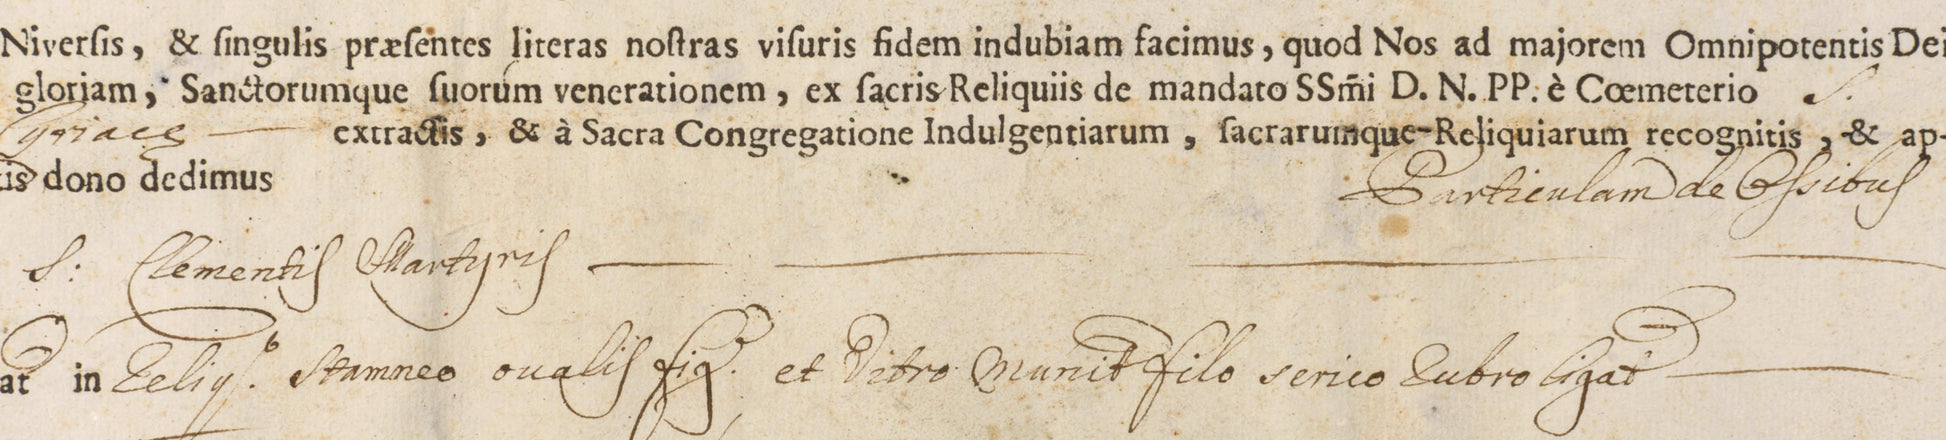 Niversis, & singulis præsentes literas nostras visuris fidem indubiam facimus, quod Nos ad majorem Omnipotentis Dei
gloriam, Sanctorumque suorum venerationem, ex sacris Reliquiis de mandato SSm̃i D. N. PP. è Cœmeterio S.
Cyriacę — extractis, & à Sacra Congregatione Indulgentiarum, sacrarumque Reliquiarum recognitis, & ap-
is dono dedimus Particulam de Ossibus
S: Clementis Martyris —
at in Reliq.º stamneo ovalis fig.ę et Vitro munit filo serico rubro ligat —